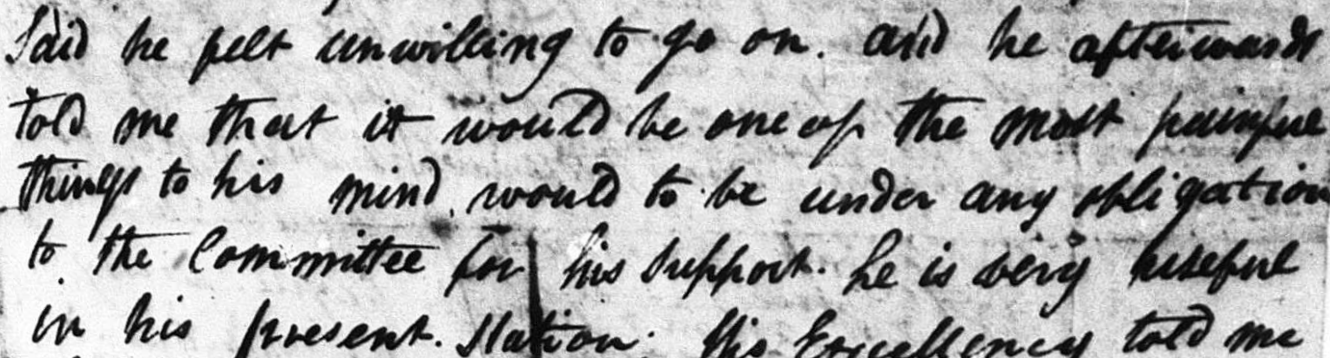 Said he felt unwilling to go on. and he afterwards
told me that it would be one of the most painful
things to his mind, would to be under any obligation
to the Committee for his support. he is very useful
in his present. Station. His Excellency told me